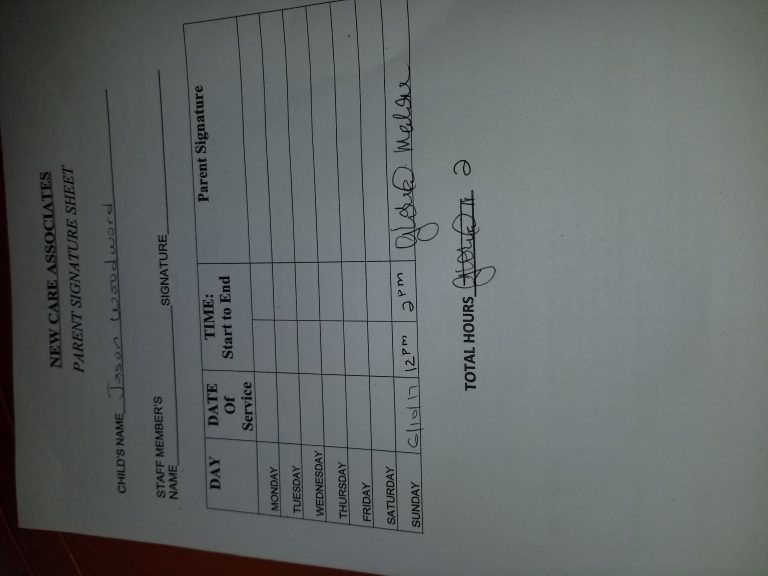 NEW CARE ASSOCIATES
PARENT SIGNATURE SHEET
CHILD'S NAME Jason Woodword
STAFF MEMBER'S
NAME SIGNATURE
DAY DATE Of Service TIME: Start to End Parent Signature
MONDAY
TUESDAY
WEDNESDAY
THURSDAY
FRIDAY
SATURDAY
SUNDAY 6/10/17 12pm 2pm
TOTAL HOURS 2